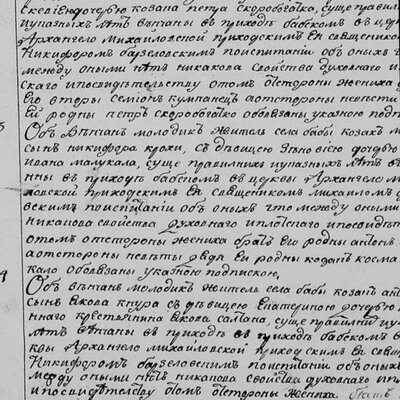 Ексениею дочерю козака петра скоробогатка, суще правилн
и указныхъ лѣтъ вѣнчаны въ приходѣ бабскомъ въ церкв
Архангело михайловской приходскимъ ея священником
Никифоромъ барзеловскимъ по испитании объ оныхъ ч
между оными нѣтъ никакова свойства духовного и п
скаго и посвидѣтельству о томъ от стороны жениха
Его второы семионъ кумпанецъ а от стороны невести
Ей родны петръ скоробогатко обовязаны указною подп
Объ Вѣнчанъ молодикъ житель села бабы козакъ м
сынъ никифора крохи, съ дѣвицею дочерю
ивана малукала, суще правилнихъ и указныхъ лѣтъ в
нны въ приходѣ бабскомъ въ церквы Архангело м
ловской приходскимъ Ея священникомъ михаиломъ
вскимъ по испитании объ оныхъ что между оными
никакова свойства духовного и плотскаго и посвидѣт
о томъ от стороны жениха братъ Его родны
а от стороны невѣсты дядя Ей родны козакъ косма
кало обовязаны указною подпискою,
4 Объ вѣнчанъ молодихъ житель села бабы козакъ
сынъ якова кнура съ дѣвицею Екатериною дочерю
ннаго крестьянина якова салтана, суще правилнихъ и у
лѣтъ вѣнчаны въ приходѣ въ приходѣ бабскомъ в
квы Архангело михайловской приходскимъ ея священ
Никифоромъ барзеловскимъ по испитании объ оныхъ
между оными нѣтъ никакова свойства духовного и пл
и посвидѣтельству о томъ от стороны жениха